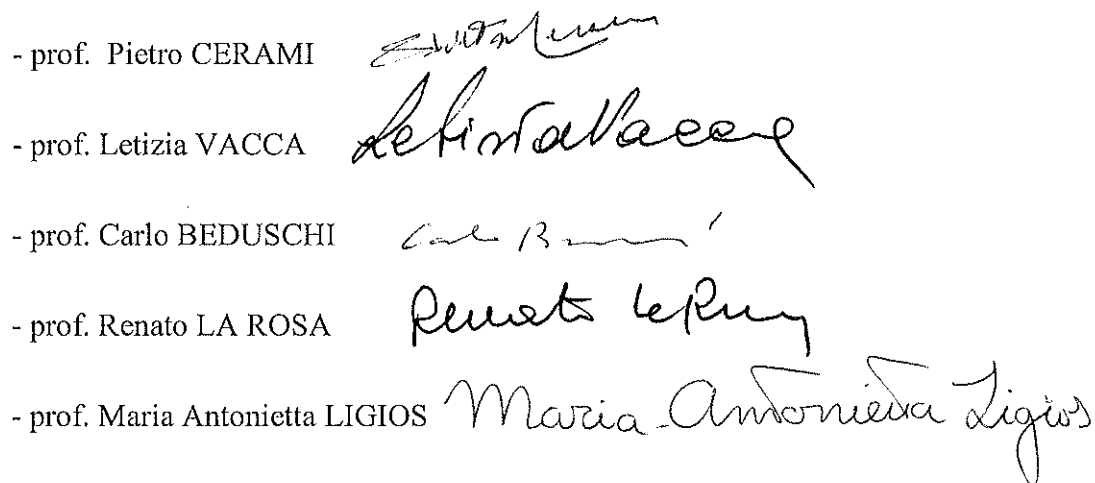 - prof. Pietro CERAMI
- prof. Letizia VACCA Letizia Vacca
- prof. Carlo BEDUSCHI Carlo
- prof. Renato LA ROSA Renato La Rosa
- prof. Maria Antonietta LIGIOS Maria Antonietta Ligios